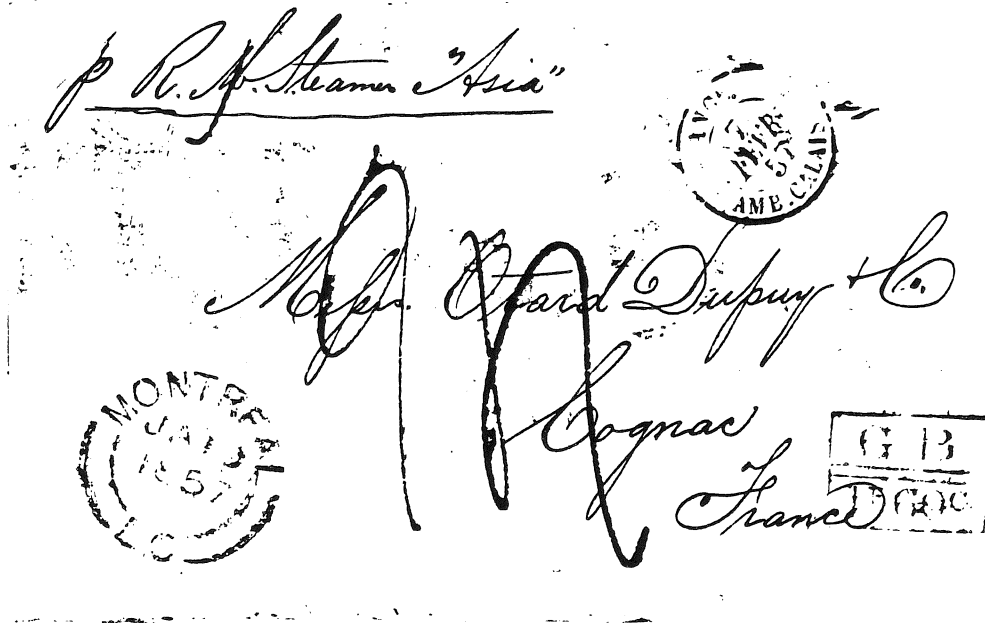 p R. M. Steamer "Asia"
ANGL.
FEVR.
57
AMB. CALAIS
Messrs. Otard Dupuy & Co.
Cognac
France
MONTREAL
JA
1857
L.C
G B
1F60c